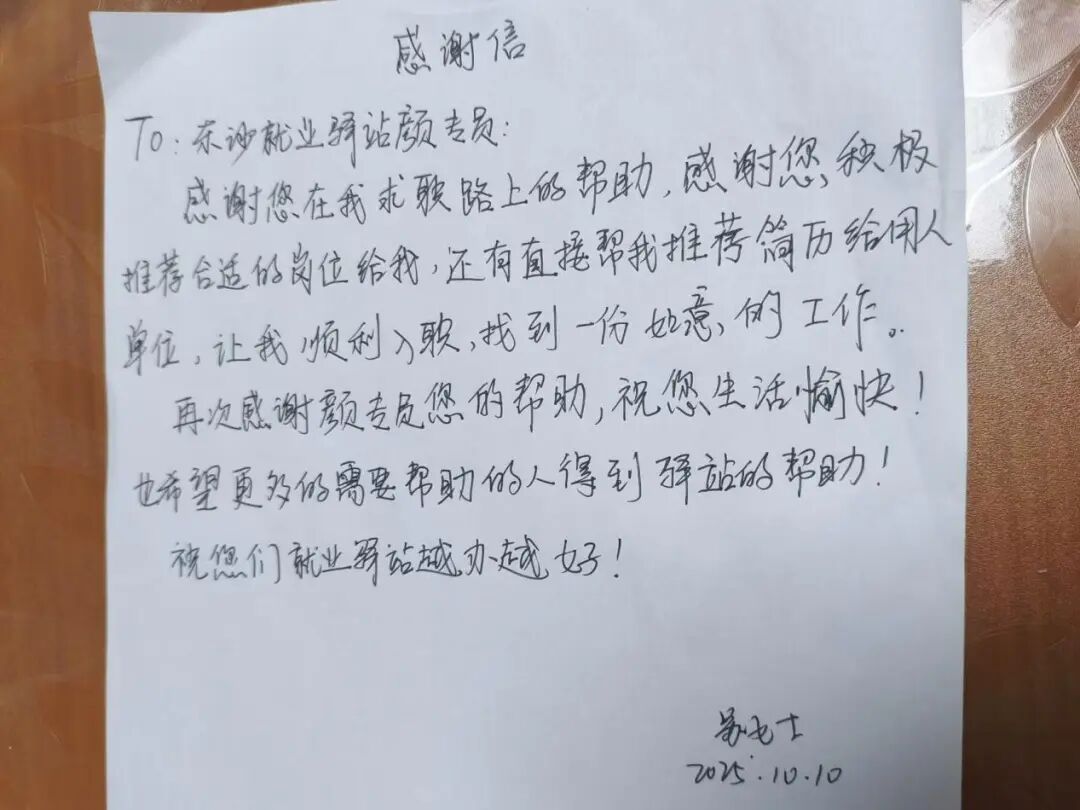 感谢信
To：东沙就业驿站颜专员：
感谢您在我求职路上的帮助，感谢您积极
推荐合适的岗位给我，还有直接帮我推荐简历给用人
单位，让我顺利入职，找到一份如意的工作。
再次感谢颜专员您的帮助，祝您生活愉快！
也希望更多的需要帮助的人得到驿站的帮助！
祝您们就业驿站越办越好！
女士
2025.10.10